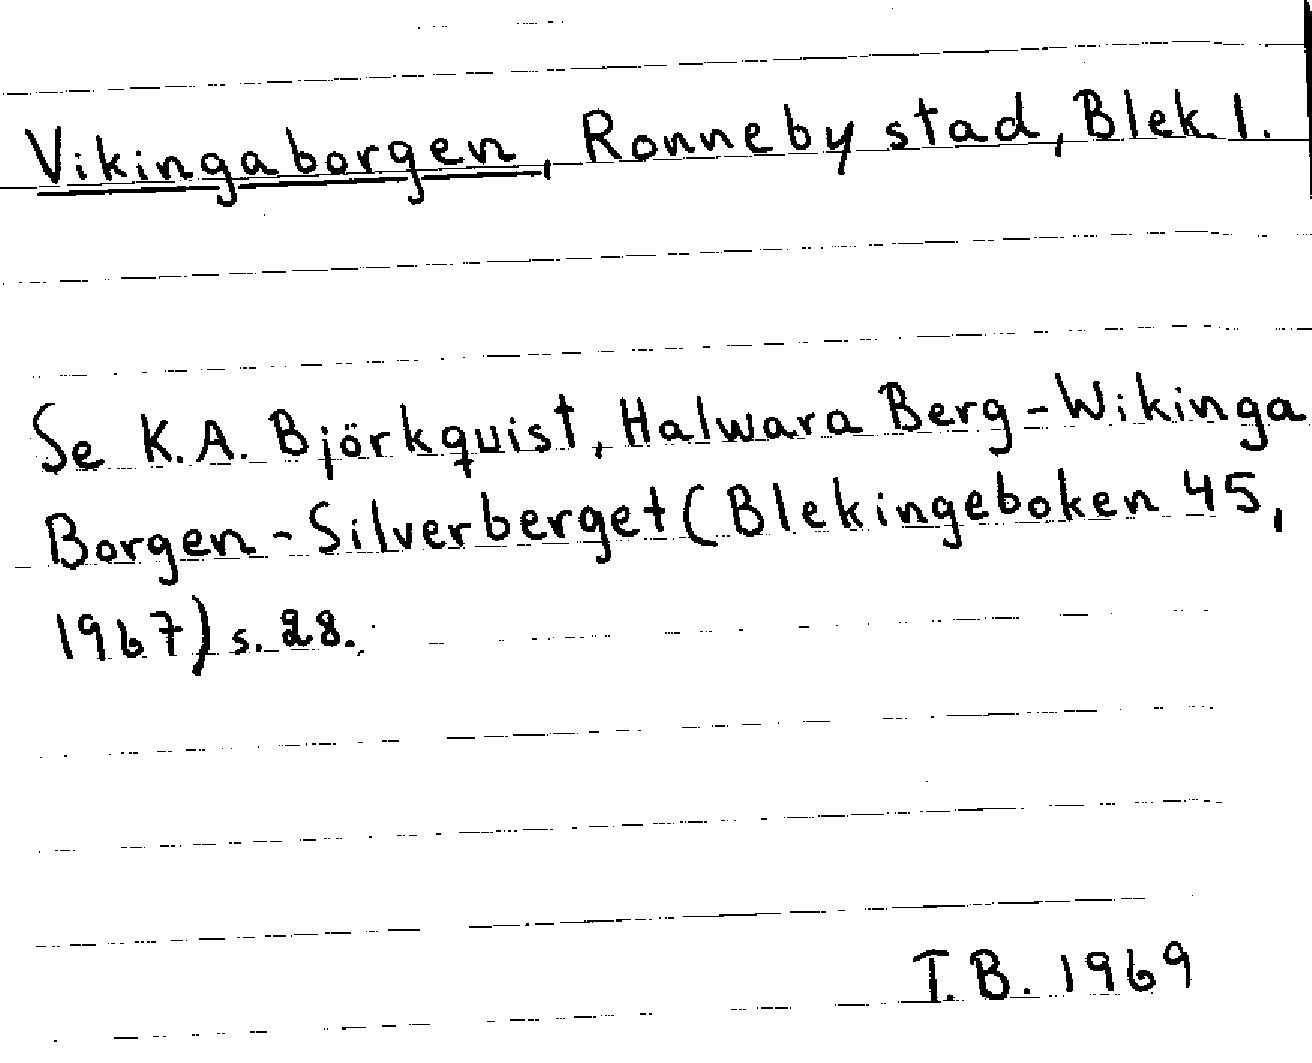 Vikingaborgen, Ronneby stad, Blek l.
Se K.A. Björkquist, Halwara Berg-Wikinga
Borgen-Silverberget (Blekingeboken 45,
1967) s. 28.
T.B. 1969